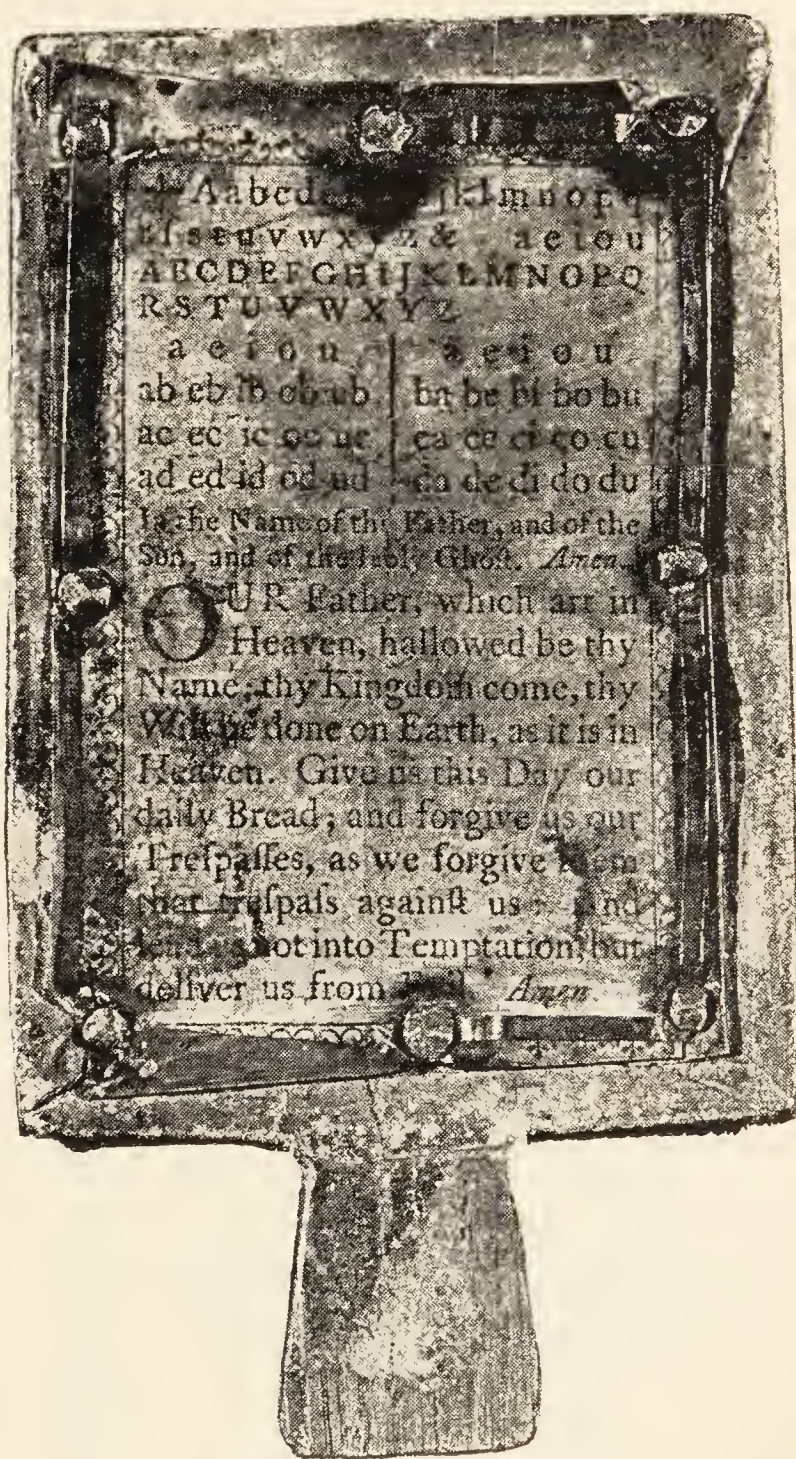 Aabcde jklmnopq
rſstuvwxyz& aeiou
ABCDEFGHIJKLMNOPQ
RSTUVWXYZ
a e i o u | a e i o u
ab eb ib ob ub | ba be bi bo bu
ac ec ic oc uc | ca ce ci co cu
ad ed id od ud | da de di do du
In the Name of the Father, and of the
Son, and of the Holy Ghoſt. Amen.
OUR Father, which art in
Heaven, hallowed be thy
Name; thy Kingdom come, thy
Will be done on Earth, as it is in
Heaven. Give us this Day our
daily Bread; and forgive us our
Treſpaſſes, as we forgive them
that treſpaſs againſt us: And
not into Temptation, but
deliver us from Evil. Amen.